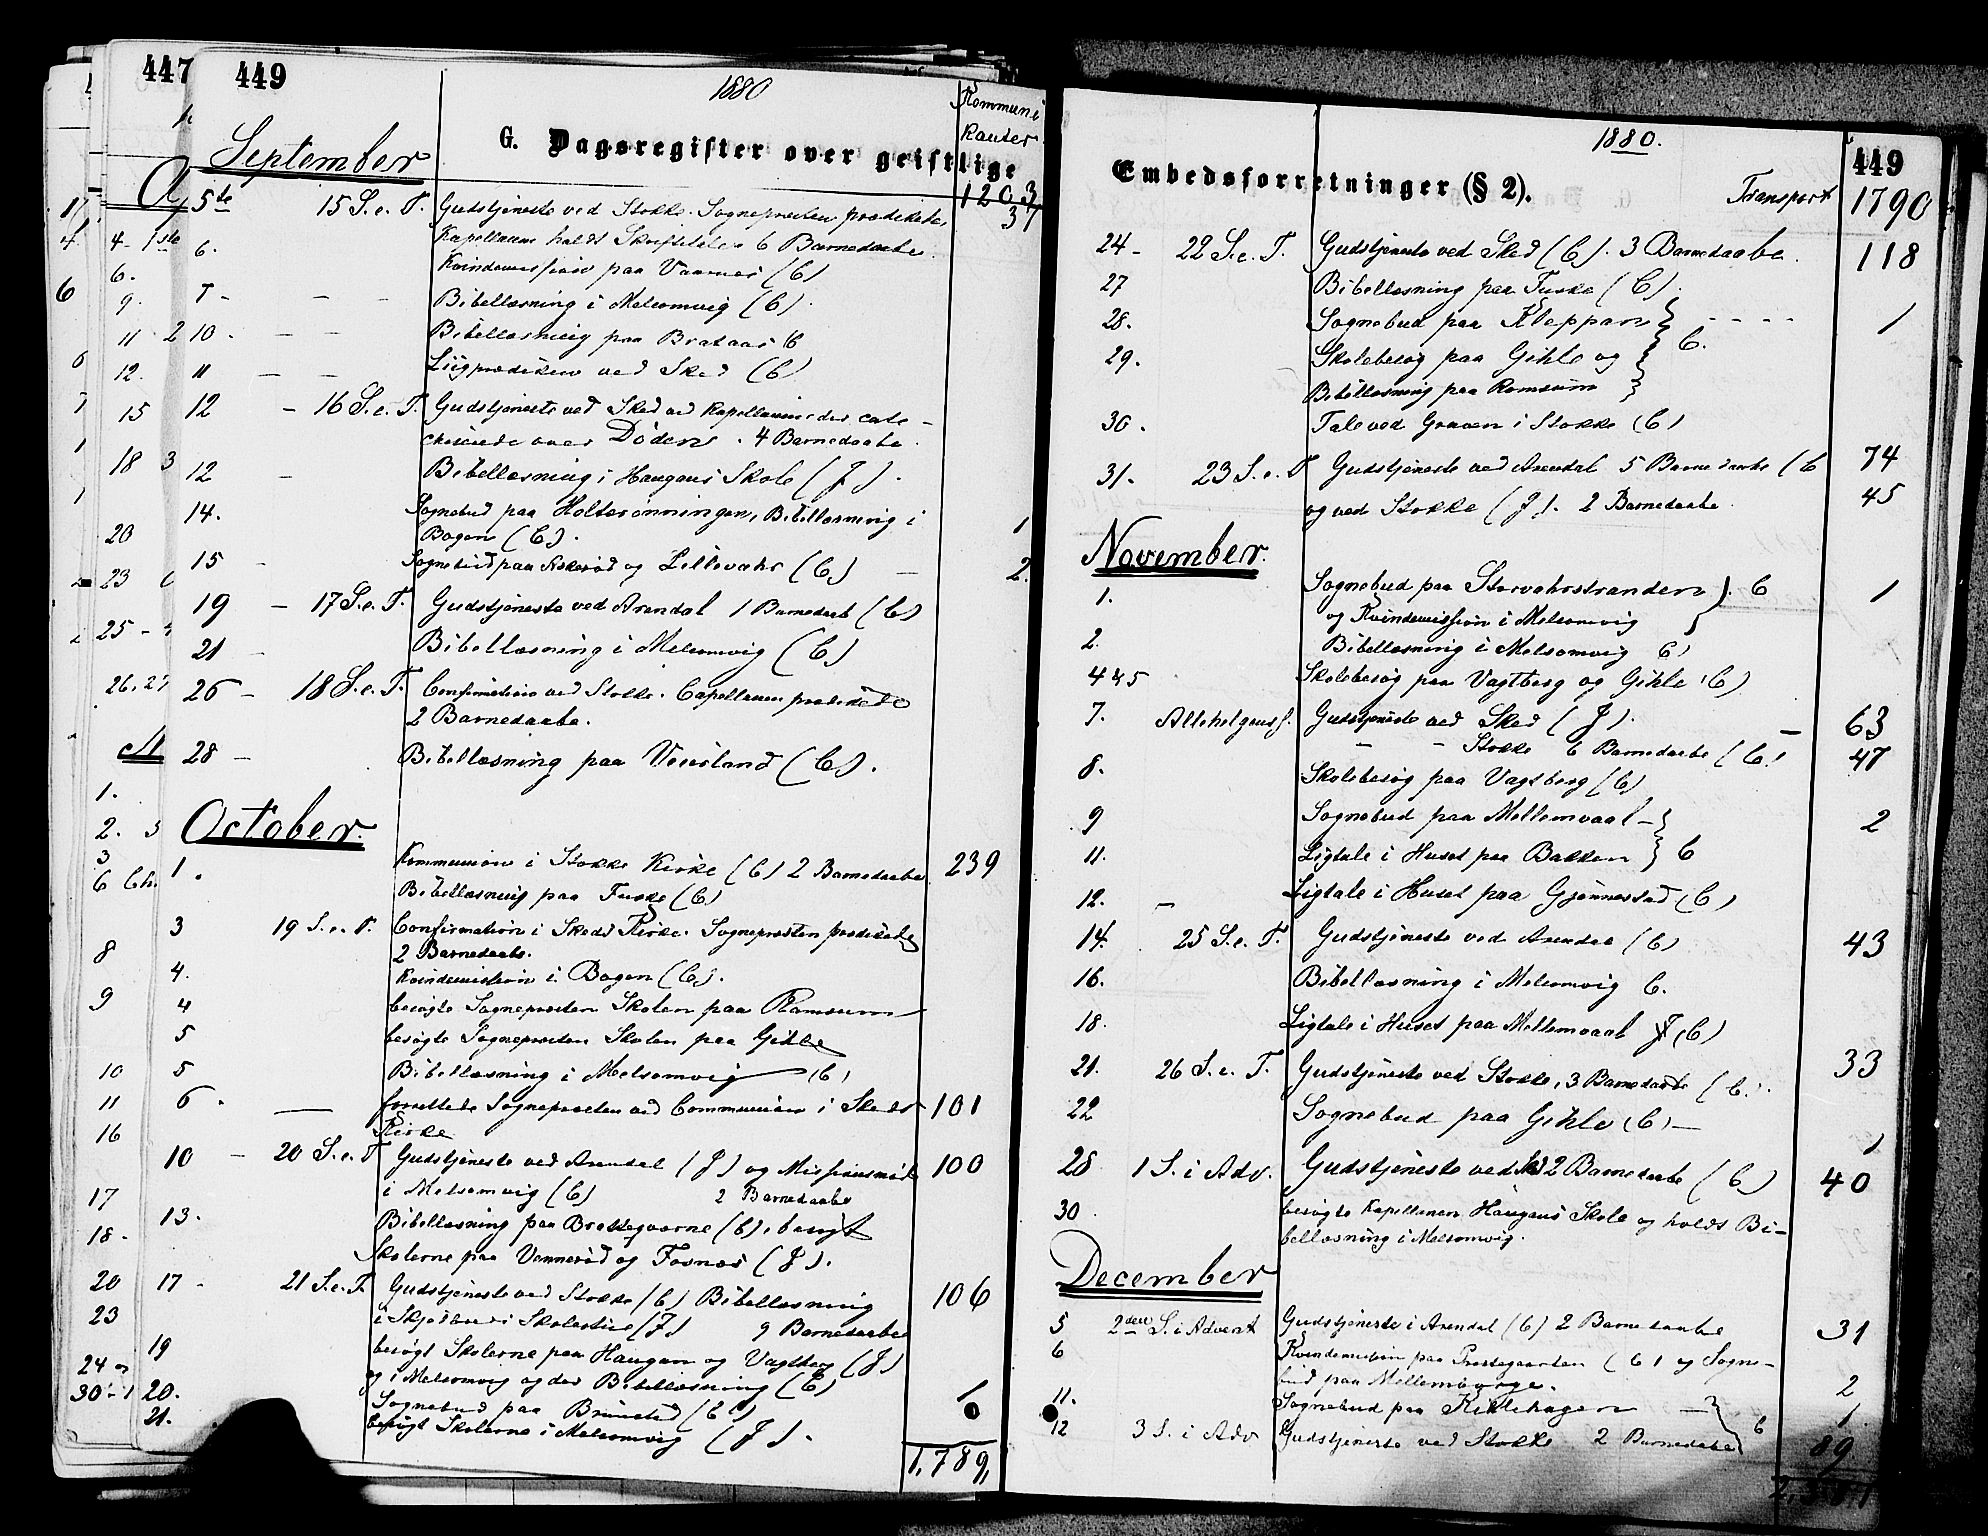 447
449
1880
Kommuni
kanter
G. Dagsregister over geistlige
September
1203
5te 15 S. e. T. Gudstjeneste ved Stokke. Sognepræsten prædikede, 37
Kapellanen holdt Skriftetalen 6 Barnedaabe.
6. Kvindemission paa Vaarnes (C)
7 - - - Bibellæsning i Melsomvig (C).
10. - - Bibellæsning paa Brataas C
11 - - Liigprædiken ved Sked (C)
12 - 16 S. e. T. Gudstjeneste ved Sked ved Kapellanen der cate-
chiserede over Döden. 4 Barnedaabe.
12 - Bibellæsning i Haugans Skole (J).
14. Sognebud paa Holterönningen, Bibellæsning i 1
Bogen (C).
15 - Sognebud paa Askeröd og Lillevahr (C) - 2.
19 - 17 S. e. T. Gudstjeneste ved Arendal 1 Barnedaab (C)
21 - Bibellæsning i Melsomvig (C)
26 - 18 S. e. T. Confirmation ved Stokke. Capellanen prædikede
2 Barnedaabe.
28 - Bibellæsning paa Veierland (C).
October.
1. Kommunion i Stokke Kirke (C) 2 Barnedaabe 239
Bibellæsning paa Fuske (C)
3 19 S. e. T. Confirmation i Skeds Kirke. Sognepræsten prædikede
2 Barnedaabe.
4. Kvindemission i Bogen (C).
4 besøgte Sognepræsten Skolen paa Ramsum
5 besøgte Sognepræsten Skolen paa Gihle
5 Bibellæsning i Melsomvig (C)
6. forrettede Sognepræsten ved Communion i Skeds 101
Kirke
10 - 20 S. e. T Gudstjeneste ved Arendal (J) og Missionsmöde 100
i Melsomvig (C) 2 Barnedaabe
13. Bibellæsning paa Brekkegaarne (C), besögt
Skolerne paa Venneröd og Fosnæs (J).
17 - 21 S. e. T. Gudstjeneste ved Stokke (C) Bibellæsning 106
i Skolestue (J) 9 Barnedaabe
19 besögt Skolerne paa Haugan og Vagtberg (J)
og i Melsomvig og der Bibellæsning (C)
20. Sognebud paa Brunstad (C) 1
21. besögt Skolerne i Melsomvig (J).
1,789,
1880.
449
Embedsforretninger (§ 2).
Transport 1790
24 - 22 S. e. T. Gudstjeneste ved Sked (C). 3 Barnedaabe. 118
27 Bibellæsning paa Fuske (C).
28. Sognebud paa Kleppan - - - - 1
29. Skolebesøg paa Gihle og C.
Bibellæsning paa Ramsum
30. Tale ved Graven i Stokke (C)
31. 23 S. e. T Gudstjeneste ved Arendal 5 Barnedaabe (C 74
og ved Stokke (J). 2 Barnedaabe 45
November.
1. Sognebud paa Storvahrstranden C 1
og Kvindemission i Melsomvig
2. Bibellæsning i Melsomvig C)
4 & 5 Skolebesøg paa Vagtberg og Gihle (C)
7. Allehelgensf. Gudstjeneste ved Sked (J). - 63
- - Stokke 6 Barnedaabe (C) 47
8. Skolebesøg paa Vagtberg (C)
9 Sognebud paa Mellemvaal - 2
11. Ligtale i Huset paa Bakken C
12. - Ligtale i Huset paa Gjennestad (C)
14. 25 S. e. T. Gudstjeneste ved Arendal (C) 43
16. Bibellæsning i Melsomvig C.
18. Ligtale i Huset paa Mellemvaal (C)
21. 26 S. e. T. Gudstjeneste ved Stokke, 3 Barnedaabe (C). 33
22 Sognebud paa Gihle (C) - 1
28 1 S. i Adv. Gudstjeneste ved Sked 2 Barnedaabe (C) 40
30 besøgte Kapellanen Haugans Skole og holdt Bi-
bellæsning i Melsomvig.
December
5 2den S. i Advent Gudstjeneste i Arendal (C) 2 Barnedaabe 31
6 Kvindemission paa Prestegaarden (C) og Sogne-
bud paa 2
11. Sognebud paa Killehagen - 1
12 3 S. i Adv Gudstjeneste ved Stokke 2 Barnedaabe C 89.